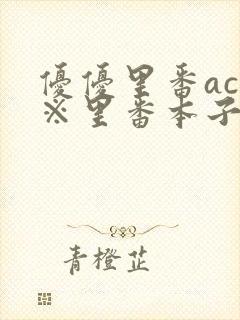 優優里番ac
※里番本子
青橙芷